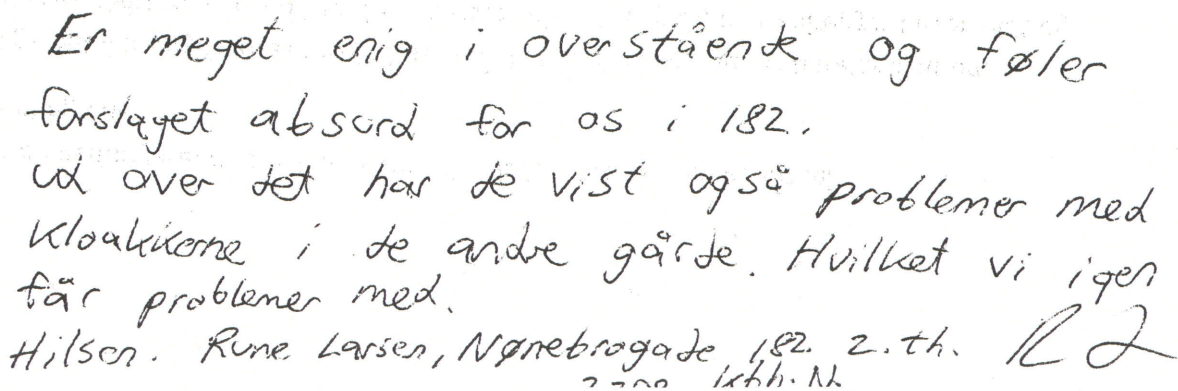 Er meget enig i overstående og føler
forslaget absurd for os i 182.
ud over det har de vist også problemer med
kloakkerne i de andre gårde. Hvilket vi igen
får problemer med.
Hilsen. Rune Larsen, Nørrebrogade 182. 2. th.